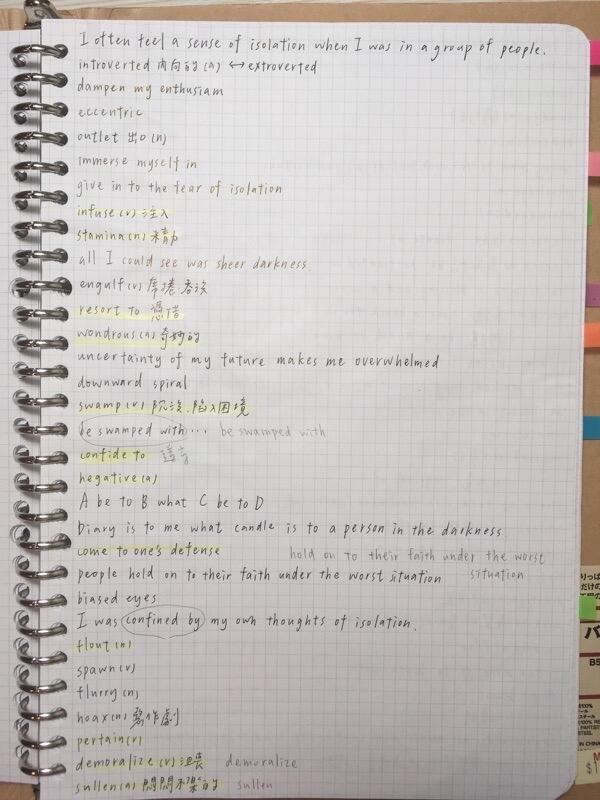 I often feel a sense of isolation when I was in a group of people.
introverted 內向的(a) ↔ extroverted
dampen my enthusiam
eccentric
outlet 出口(n)
immerse myself in
give in to the fear of isolation
infuse(v) 注入
stamina(n) 精力
all I could see was sheer darkness.
engulf(v) 席捲.吞沒
resort to 憑借
wondrous(a) 奇妙的
uncertainty of my future makes me overwhelmed
downward spiral
swamp(v) 沉沒.陷入困境
be swamped with... be swamped with
confide to
negative(a)
A be to B what C be to D
Diary is to me what candle is to a person in the darkness
come to one's defense hold on to their faith under the worst
people hold on to their faith under the worst situation situation
biased eyes
I was confined by my own thoughts of isolation.
flout(n)
spawn(v)
flurry(n)
hoax(n) 惡作劇
pertain(v)
demoralize(v) 沮喪 demoralize
sullen(a) 悶悶不樂的 sullen
B5